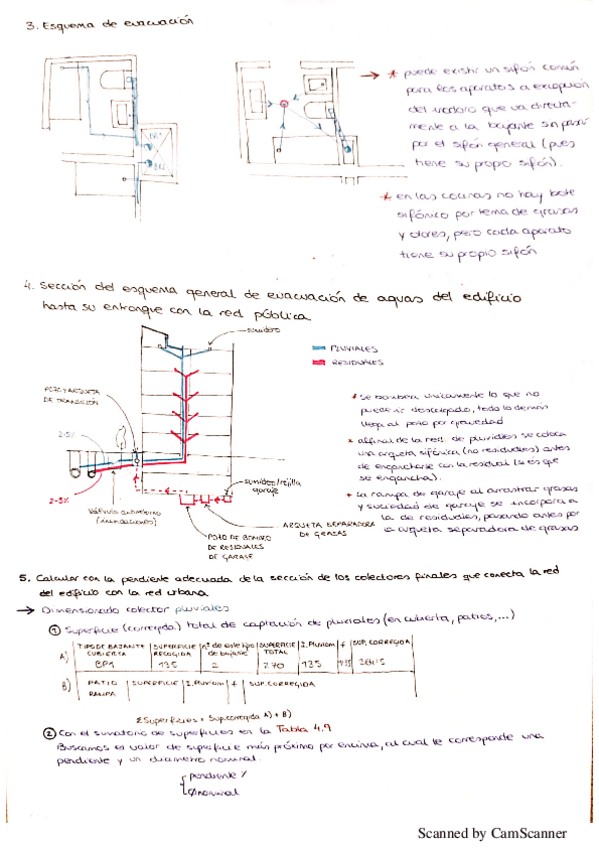 3. Esquema de evacuación
→ * puede existir un sifón común
para los aparatos a excepción
del inodoro que va directa-
mente a la bajante sin pasar
por el sifón general (pues
tiene su propio sifón).
* en las cocinas no hay bote
sifónico por tema de grasas
y olores, pero cada aparato
tiene su propio sifón
4. Sección del esquema general de evacuación de aguas del edificio
hasta su entronque con la red pública
sumidero
PLUVIALES
RESIDUALES
POZO Y ARQUETA
DE TRANSICIÓN
2-5%
2-5%
Válvula antirretorno
(inundaciones)
sumidero/rejilla
garaje
POZO DE BOMBEO
DE RESIDUALES
DE GARAJE
ARQUETA SEPARADORA
DE GRASAS
* se bombea únicamente lo que no
puede ir descolgado, todo lo demás
llega al pozo por gravedad
* al final de la red de pluviales se coloca
una arqueta sifónica (no residuales) antes
de engancharse con la residual (si es que
se engancha).
* La rampa de garaje al arrastrar grasas
y suciedad de garaje se incorpora a
la de residuales, pasando antes por
arqueta separadora de grasas
5. Calcular con la pendiente adecuada de la sección de los colectores finales que conecta la red
del edificio con la red urbana
→ Dimensionado colector pluviales
① Superficie (corregida) total de captación de pluviales (en cubierta, patios,...)
A) TIPO DE BAJANTE CUBIERTA | SUPERFICIE RECOGIDA | nº de este tipo de bajante | SUPERFICIE TOTAL | I.Pluviom | f | SUP. CORREGIDA
BP1 | 135 | 2 | 270 | 135
B) PATIO RAMPA | SUPERFICIE | I.Pluviom | f | SUP. CORREGIDA
Σ Superficies = Sup.corregida A) + B)
② Con el sumatorio de superficies en la Tabla 4.9
Buscamos el valor de superficie más próximo por encima, al cual le corresponde una
pendiente y un diámetro nominal.
pendiente %
Ø nominal
Scanned by CamScanner